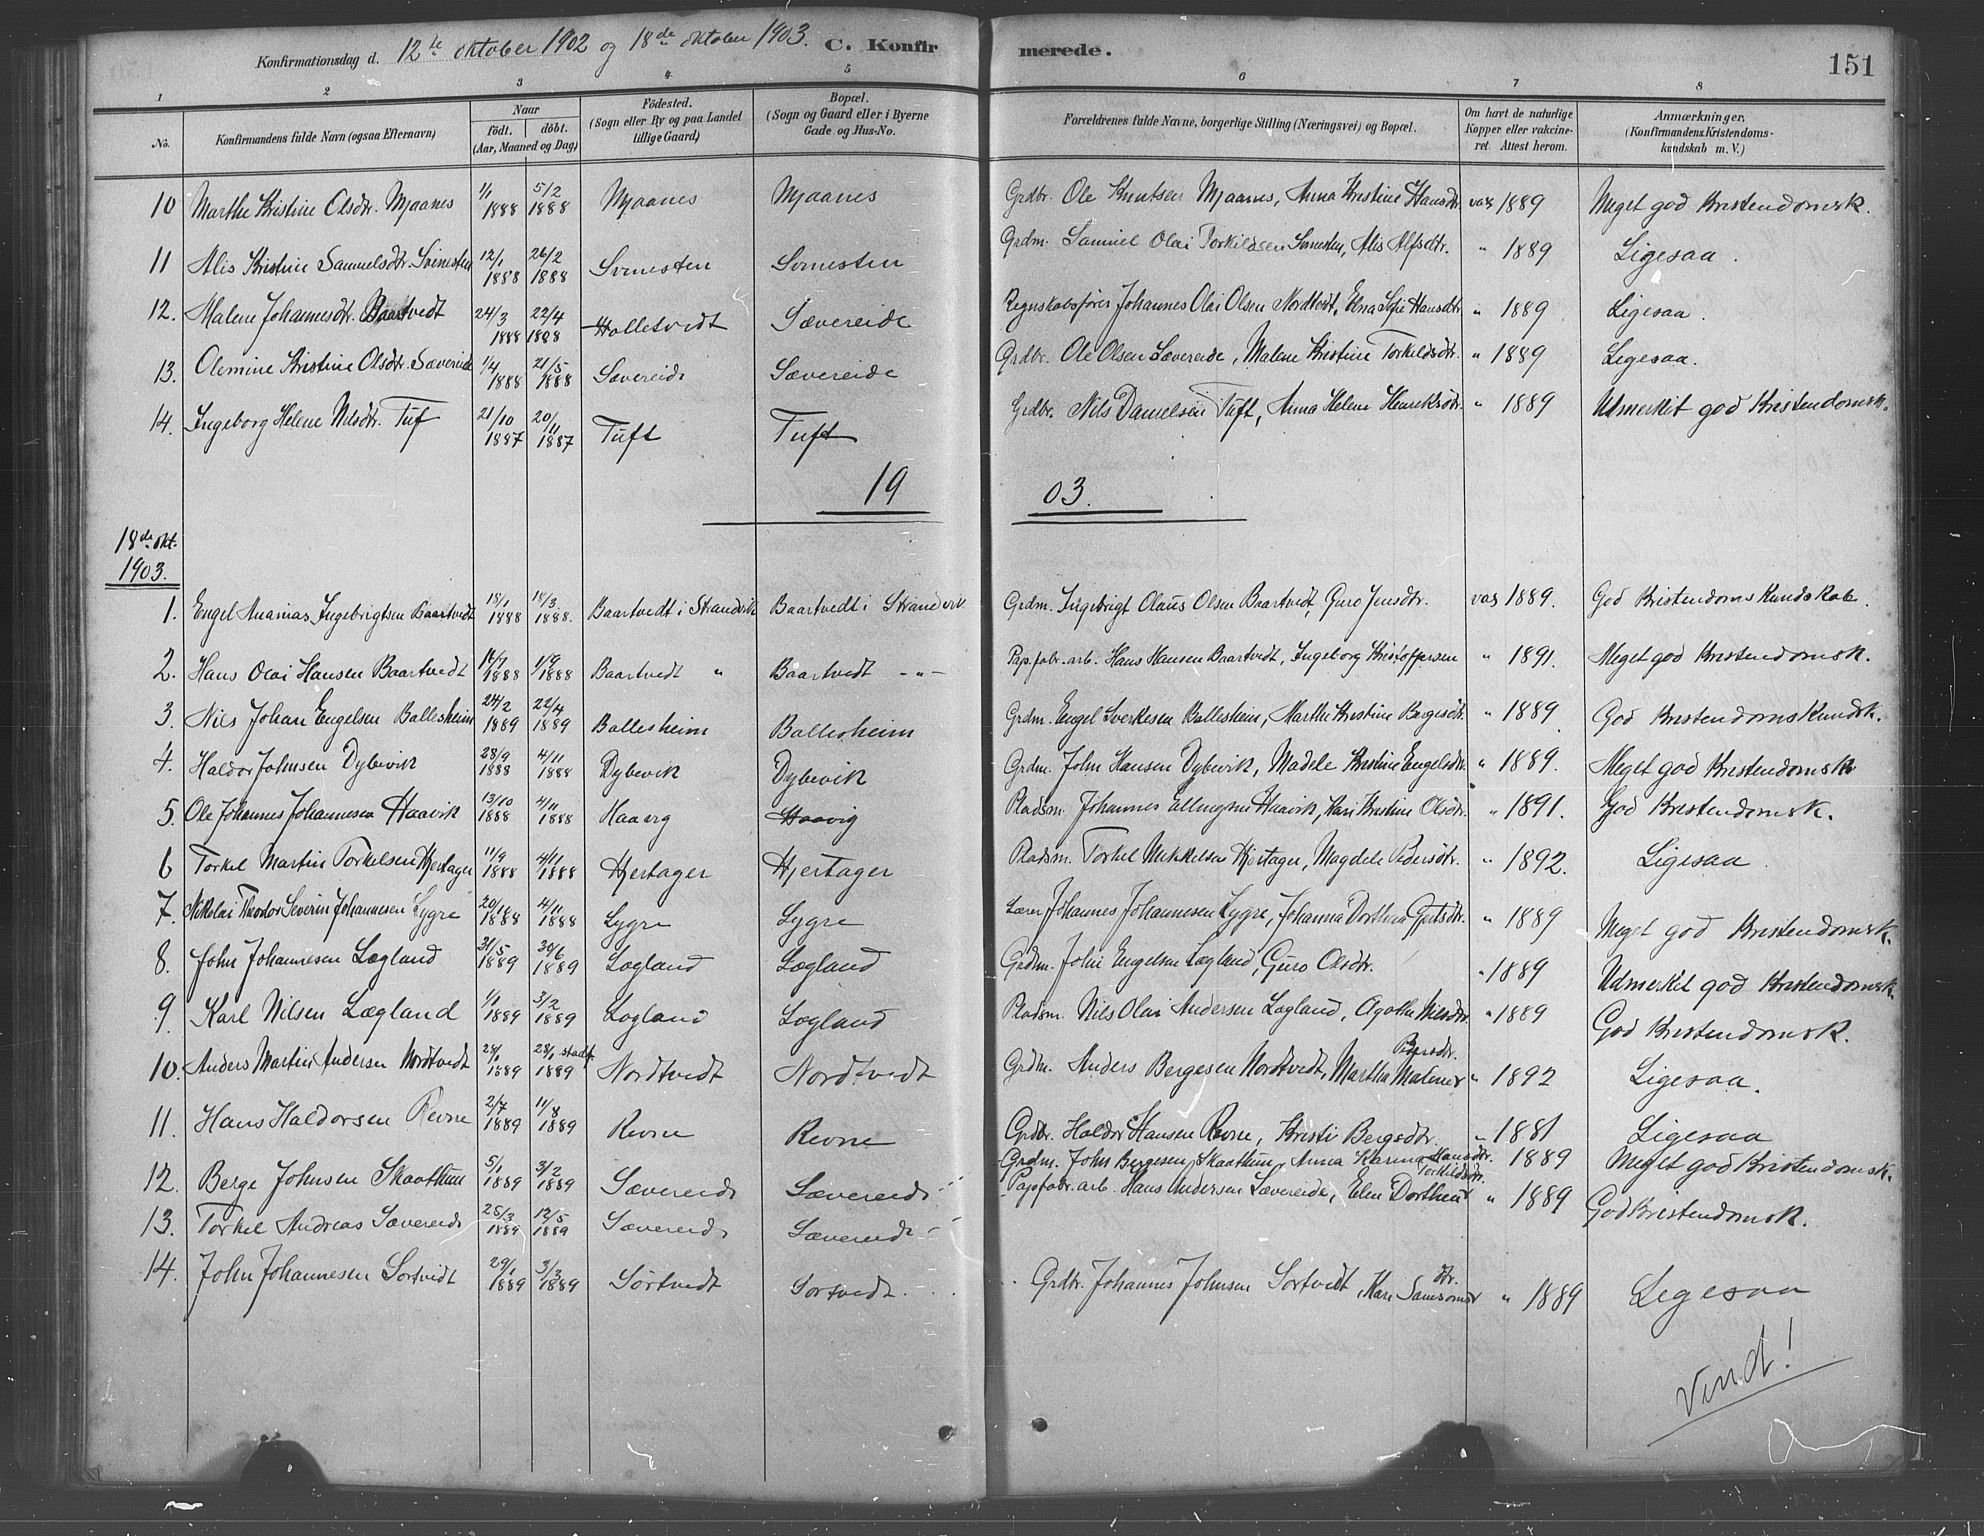 Konfirmationsdag d. 12te oktober 1902 og 18de oktober 1903. C. Konfirmerede. 151
1 2 3 4 5 6 7 8
No. Konfirmandens fulde Navn (ogsaa Efternavn) Naar födt. döbt. (Aar, Maaned og Dag) Födested. (Sogn eller By og paa Landet tillige Gaard) Bopæl. (Sogn og Gaard eller i Byerne Gade og Hus-No. Forældrenes fulde Navne, borgerlige Stilling (Næringsvei) og Bopæl. Om havt de naturlige Kopper eller vaccineret. Attest herom. Anmærkninger. (Konfirmandens Kristendomskundskab m. V.)
10 Marthe Kristine Olsdr. Mjaanes 1/1 1888 5/2 1888 Mjaanes Mjaanes Grdbr. Ole Knutsen Mjaanes, Anna Kristine Hansdtr. vac 1889 Meget god Kristendomsk.
11 Alis Kristine Samuelsdtr. Svinesten 12/1 1888 26/2 1888 Svinesten Svinesten Grdm. Samuel Olai Torkildsen Svinesten, Alis Alfsdtr. " 1889 Ligesaa.
12. Malene Johannesdtr. Baartvedt 24/3 1888 22/4 1888 Holletvedt Sævereide Regnskabsfører Johannes Olai Olsen Nordtvedt, Elna Sofie Hansdtr " 1889 Ligesaa.
13. Olemine Kristine Olsdtr. Sævereide 1/4 1888 21/5 1888 Sævereide Sævereide Grdbr. Ole Olsen Sævereide, Malene Kristine Torkeldsdtr. " 1889 Ligesaa.
14. Ingeborg Helene Nilsdtr. Tuf 21/10 1887 20/11 1887 Tuft Tuft Grdbr. Nils Danielsen Tuft, Anna Helene Henriksdtr. " 1889 Udmerket god Kristendomsk.
1903.
18de okt.
1903.
1. Engel Ananias Ingebrigtsen Baartvedt 18/1 1888 18/3 1888. Baartvedt i Strandvik Baartvedt i Strandvik Grdm. Ingebrigt Olaus Olsen Baartvedt, Guro Jensdtr. vac 1889. God Kristendoms Kundskab.
2. Hans Olai Hansen Baartvedt 1888 1888 Baartvedt " Baartvedt - " - Pap.fabr.arb. Hans Hansen Baartvedt, Ingeborg Kristoffersen " 1891. Meget god Kristendomsk.
3. Nils Johan Engelsen Ballesheim 24/2 1889 22/4 1889 Ballesheim Ballesheim Grdm. Engel Sverkesen Ballesheim, Marthe Kristine Bergesdtr. " 1889. God Kristendomskundsk.
4. Haldor Johnsen Dybevik 28/9 1888 4/11 1888 Dybevik Dybevik Grdm. John Hansen Dybevik, Madele Kristine Engelsdtr. " 1889. Meget god Kristendomsk
5. Ole Johannes Johannesen Haavik 13/10 1888 4/11 1888 Haavig Haavig Pladsm. Johannes Ellingsen Haavik, Kari Kristine Olsdtr. " 1891. God Kristendomsk.
6 Torkel Martin Torkelsen Hjertager 11/9 1888 4/11 1888 Hjertager Hjertager Pladsm. Torkel Mikkelsen Hjertager, Magdele Pedersdtr. " 1892. Ligesaa
7. Nikolai Theodor Severin Johannesen Lygre 20/10 1888 4/11 1888 Lygre Lygre Lærer Johannes Johannesen Lygre, Johanna Dorthea " 1889 Meget god Kristendomsk.
8. John Johannesen Lægland 31/5 1889 30/6 1889 Lægland Lægland Grdm. John Engelsen Lægland, Guro Olsdtr. " 1889 Udmerket god Kristendomsk
9 Karl Nilsen Lægland 1/1 1889 3/2 1889 Lægland Lægland Pladsm. Nils Olai Andersen Lægland, Agathe Nilsdtr. " 1889 God Kristendomsk.
10. Anders Martin Andersen Nordtvedt 28/1 1889 28/1 stadf 1889 Nordtvedt Nordtvedt Grdm. Anders Bergesen Nordtvedt, Martha Malene Pedersdtr. " 1892 Ligesaa.
11. Hans Haldorsen Revne 2/7 1889 11/8 1889 Revne Revne Grdbr. Haldor Hansen Revne, Kristi Bergsdtr. " 1881 Ligesaa
12. Berge Johnsen Skaathun 5/1 1889 3/2 1889 Sævereide Sævereide Grdm. John Bergesen Skaathun, Anna Karina Hansdtr. 1889 Meget god Kristendomsk.
13. Torkel Andreas Sævereide 25/3 1889 12/5 1889 Sævereide Sævereide Papfabr.arb. Hans Andersen Sævereide, Elen Dorthea Torkildsdtr. " 1889 God Kristendomsk.
14. John Johannesen Sortvedt 29/1 1889 3/3 1889 Sörtvedt Sortvedt Grdbr. Johannes Johnsen Sortvedt, Kari Samsonsdtr. " 1889 Ligesaa
Vend!